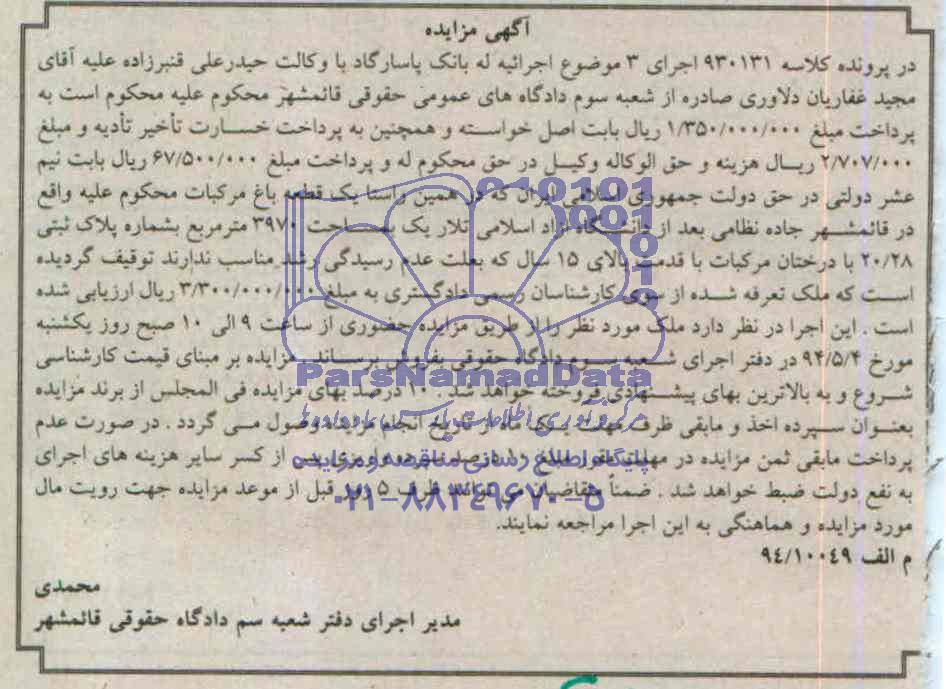 آگهی مزایده
در پرونده کلاسه ۹۳۰۱۳۱ اجرای ۳ موضوع اجرائیه له بانک پاسارگاد با وکالت حیدرعلی قنبرزاده علیه آقای
مجید غفاریان دلاوری صادره از شعبه سوم دادگاه های عمومی حقوقی قائمشهر محکوم علیه محکوم است به
پرداخت مبلغ ۱/۳۵۰/۰۰۰/۰۰۰ ریال بابت اصل خواسته و همچنین به پرداخت خسارت تأخیر تأدیه و مبلغ
۲/۷۰۷/۰۰۰ ریال هزینه و حق الوکاله وکیل در حق محکوم له و پرداخت مبلغ ۶۷/۵۰۰/۰۰۰ ریال بابت نیم
عشر دولتی در حق دولت جمهوری اسلامی ایران که در همین راستا یک قطعه باغ مرکبات محکوم علیه واقع
در قائمشهر جاده نظامی بعد از دانشگاه آزاد اسلامی تلار یک بمساحت ۳۹۷۰ مترمربع بشماره پلاک ثبتی
۲۰/۲۸ با درختان مرکبات با قدمت بالای ۱۵ سال که بعلت عدم رسیدگی رشد مناسب ندارند توقیف گردیده
است که ملک تعرفه شده از سوی کارشناسان رسمی دادگستری به مبلغ ۳/۳۰۰/۰۰۰/۰۰۰ ریال ارزیابی شده
است . این اجرا در نظر دارد ملک مورد نظر را از طریق مزایده حضوری از ساعت ۹ الی ۱۰ صبح روز یکشنبه
مورخ ۹۴/۵/۴ در دفتر اجرای شعبه سوم دادگاه حقوقی بفروش برساند . مزایده بر مبنای قیمت کارشناسی
شروع و به بالاترین بهای پیشنهادی فروخته خواهد شد . ۱۰ درصد بهای مزایده فی المجلس از برند مزایده
بعنوان سپرده اخذ و مابقی ظرف مهلت یک ماه از تاریخ انجام مزایده وصول می گردد . در صورت عدم
پرداخت مابقی ثمن مزایده در مهلت مقرر مبلغ ۱۰ درصد سپرده واریزی پس از کسر سایر هزینه های اجرای
به نفع دولت ضبط خواهد شد . ضمناً متقاضیان می توانند ظرف ۵ روز قبل از موعد مزایده جهت رویت مال
مورد مزایده و هماهنگی به این اجرا مراجعه نمایند.
م الف ۹۴/۱۰۰۴۹
محمدی
مدیر اجرای دفتر شعبه سم دادگاه حقوقی قائمشهر
ParsNamadData
پایگاه اطلاع رسانی مناقصه و مزایده
۰۲۱-۸۸۳۴۹۶۷۰-۵